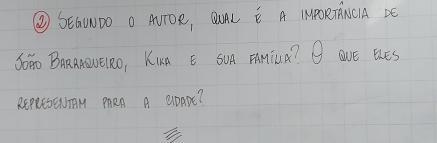 ② SEGUNDO O AUTOR, QUAL É A IMPORTÂNCIA DE
JOÃO BARRAQUEIRO, KIKA E SUA FAMÍLIA? O QUE ELES
REPRESENTAM PARA A CIDADE?